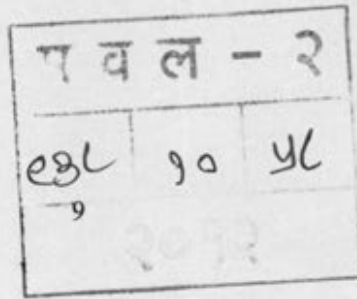 पवल - २
९३८ १० ५८
२०१२